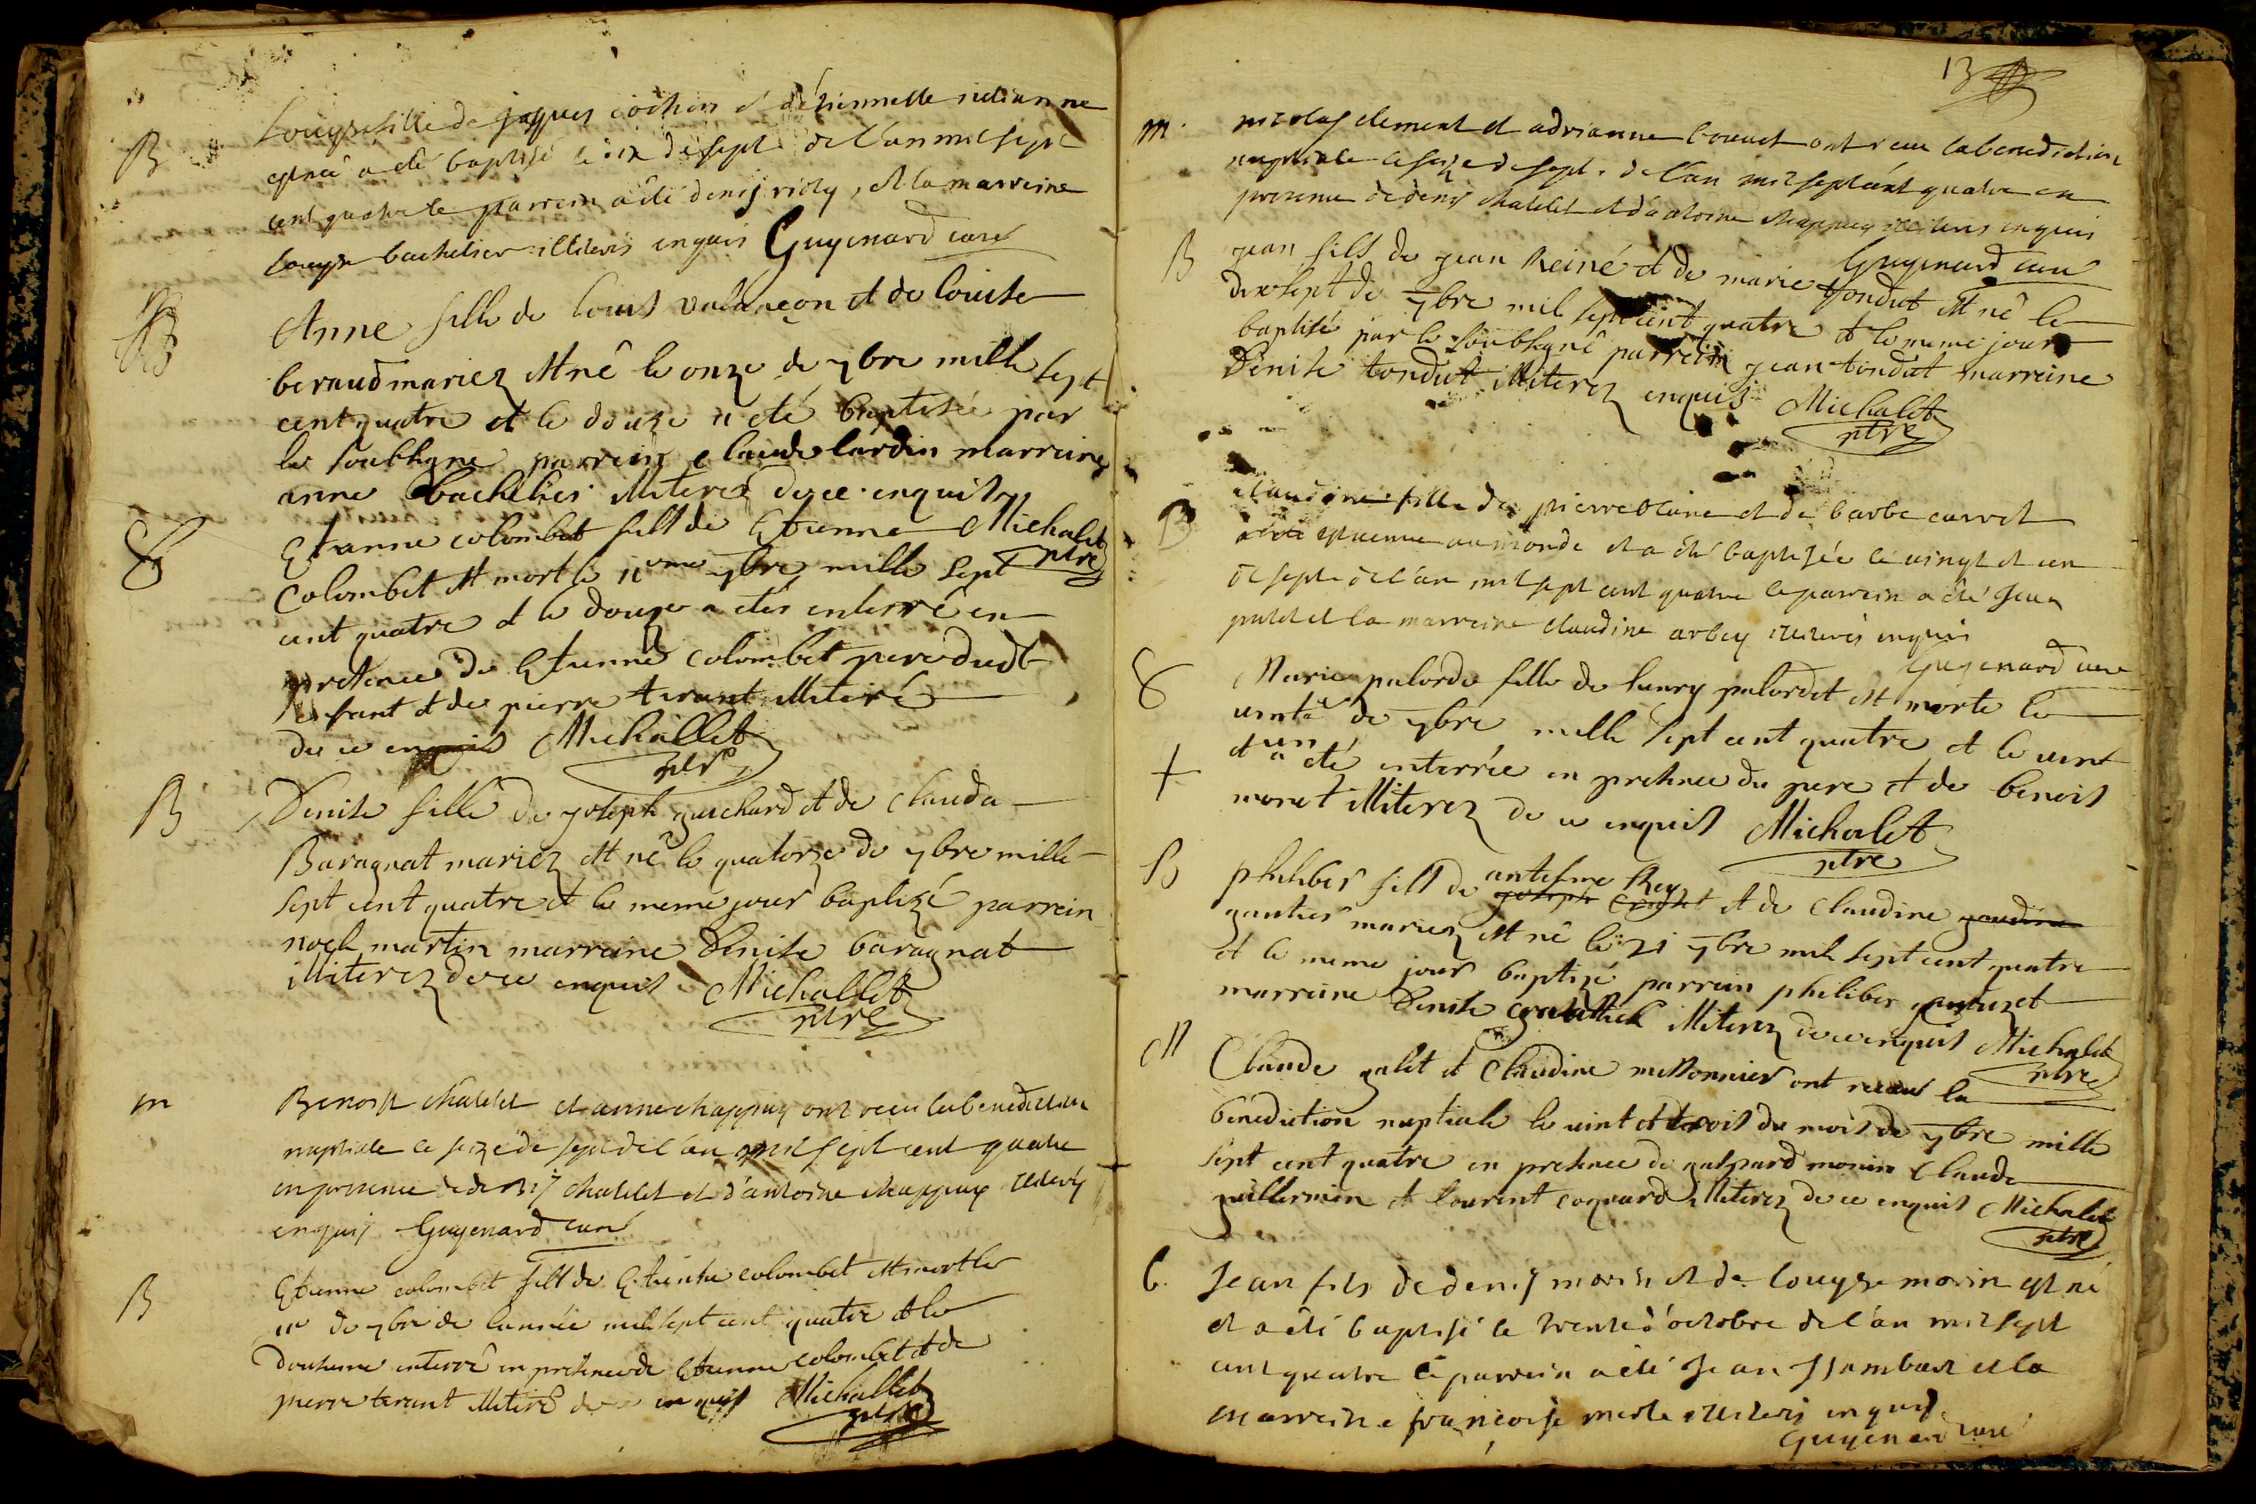 B
Louyse fille de jaques cochon et d'étiennette
est née a été baptisé le dix de sept. de l'an mil sept
cent quatre le parrein a été denis , et la marreine
Louyse bachelier illiterés enquis Guyenard curé
B
Anne fille de Louis valançon et de Louise
beraud mariez est né le onze de 7bre mille sept
cent quatre et le douze a eté baptisée par
le soubsigné parrein Claude lardin marreine
anne bachelier illiterez de ce enquis
Michalet
ptre
S
Etienne colombet fils de Etienne
Colombet est mort le 11 7bre mille sept
cent quatre et le douze a etés enterré en
presence de Etienne colombet pere dudt
enfant et de pierre tirant illiteré
de ce enquis Michallet
ptre
B
Denise fille de joseph guichard et de Clauda
Baragnat mariez est né le quatorze de 7bre mille
sept cent quatre et le meme jour baptizé parrein
noel martin marreine Denise baragnat
illiterez de ce enquis Michallet
ptre
m
Benoist chatelet et anne chappuy ont receu la benediction
nuptiale le seize de sept de l'an mil sept cent quatre
en presence de denis chatelet et d'antoine chappuy illiterés
enquis Guyenard curé
B
Etienne colombet fils de Etienne colombet est mort le
11e de 7bre de l'année mil sept cent quatre et le
douzieme enterré en presence de Etienne colombet et de
pierre tirant illiteré de ce enquis Michallet
ptre
13
m.
nicolas clement et adrianne ont receu la benediction
nuptiale le seize de sept. de l'an mil sept cent quatre en
presence de denis chatelet et d'antoine chappuy illiterés enquis
Guyenard curé
B
jean fils de jean Reiné et de marie tondut est né le
dixsept de 7bre mil sept cent quatre et le meme jour
baptisé par le soubsigné parrein jean tondut marreine
Denise tondut illiterez enquis Michalet
ptre
B
claudine fille de pierre et de barbe
est venue au monde et a été baptisée le vingt et un
de sept. de l'an mil sept cent quatre le parrein a été Jean
et la marreine claudine arbey illiterés enquis
Guyenard curé
S
Marie palorde fille de henry palordet est morte le
vinte de 7bre mille sept cent quatre et le vint
+
et un a été enterrée en presence du pere et de benoit
monet illiterez de ce enquis Michalet
ptre
B
philiber fils de antesme Rey et de Claudine
gautier mariez est né le 21 7bre mil sept cent quatre
et le meme jour baptizé parrein philiber
marreine Denise illiterez de ce enquis Michalet
ptre
M
Claude galet et Claudine missonnier ont receus la
benediction nuptiale le vint et trois du mois de 7bre mille
sept cent quatre en presence de gaspard monin Claude
guillermin et Laurent coquard illiterez de ce enquis Michalet
ptre
b.
Jean fils de denis morin et de Louyse morin est né
et a été baptisé le trente d'octobre de l'an mil sept
cent quatre le parrein a été Jean Jsambart et la
marreine françoise merle illiterés enquis
Guyenard curé